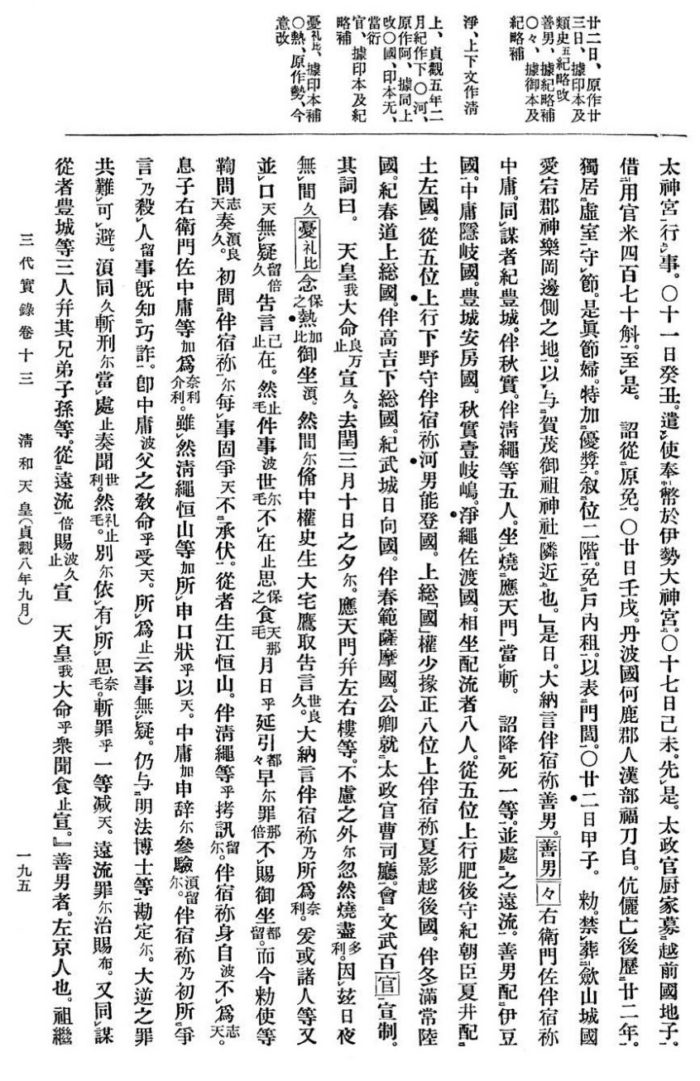 廿二日、原作廿
三日、據印本及
類史五紀略改
善男、據紀略補
〇々、據御本及
紀略補
淨、上下文作清
上、貞觀五年二
月紀作下〇河、
原作阿、據同上
改〇國、印本无、
當衍
官、據印本及紀
略補
憂礼比、據印本補
〇熱、原作勢、今
意改
太神宮行事。〇十一日癸丑。遣使奉幣於伊勢大神宮。〇十七日己未。先是。太政官厨家募越前國地子。
借用官米四百七十斛。至是。詔從原免。〇廿日壬戌。丹波國何鹿郡人漢部福刀自。伉儷亡後歷廿二年。
獨居虛室守節。是眞節婦。特加優奬。叙位二階。免戶內租。以表門閭。〇廿二日甲子。勅。禁葬歛山城國
愛宕郡神樂岡邊側之地。以与賀茂御祖神社隣近也。」是日。大納言伴宿祢善男。善男々右衞門佐伴宿祢
中庸。同謀者紀豊城。伴秋實。伴清繩等五人。坐燒應天門當斬。詔降死一等。並處之遠流。善男配伊豆
國。中庸隱岐國。豊城安房國。秋實壹岐嶋。淨繩佐渡國。相坐配流者八人。從五位上行肥後守紀朝臣夏井配
土左國。從五位上行下野守伴宿祢河男能登國。上総「國」權少掾正八位上伴宿祢夏影越後國。伴冬滿常陸
國。紀春道上総國。伴高吉下総國。紀武城日向國。伴春範薩摩國。公卿就太政官曹司廳。會文武百官宣制。
其詞曰。天皇我大命良万止宣久。去閏三月十日之夕尓。應天門幷左右樓等。不慮之外尓忽然燒盡多利。因茲日夜
無間久憂礼比念保之熱加比御坐須。然間尓俻中權史生大宅鷹取告言世良久。大納言伴宿祢乃所爲奈利。爰或諸人等又
並口天無疑留倍久告言己止在。然止毛件事波世尓毛不在止思保之食天毛那月日乎延引都々早尓罪那倍不賜御坐都留。而今勅使等
鞫問志天奏須良久。初問伴宿祢尓每事固爭天不承伏。從者生江恒山。伴淸繩等乎拷訊留尓。伴宿祢身自波不爲志天。
息子右衞門佐中庸等加爲奈利介利。雖然淸繩恒山等加所申口狀乎以天。中庸加申辞尓參驗須留尓。伴宿祢乃初所爭
言乃殺人留事旣知巧詐。卽中庸波父之敎命乎受天。所爲止云事無疑。仍与明法博士等勘定尓。大逆之罪
共難可避。須同久斬刑尓當處止奏聞世利。然礼止毛。別尓依有所思奈毛。斬罪乎一等减天。遠流罪尓治賜布。又同謀
從者豊城等三人幷其兄弟子孫等。從遠流倍賜波久止宣天皇我大命乎衆聞食止宣。』善男者。左京人也。祖繼
三代實錄卷十三 清和天皇(貞觀八年九月) 一九五